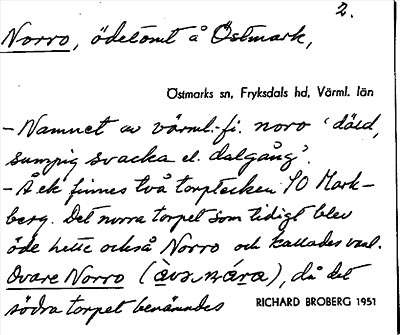 2.
Norro, ödetomt å Östmark,
Östmarks sn, Fryksdals hd, Värml. län
- Namnet av värml.-fi. noro 'däld,
sumpig svacka el. dalgång'.
- Å ek finnes två torptecken SO Mark-
berg. Det norra torpet som tidigt blev
öde hette också Norro och kallades vanl.
Ovare Norro (), då det
södra torpet benämndes
RICHARD BROBERG 1951